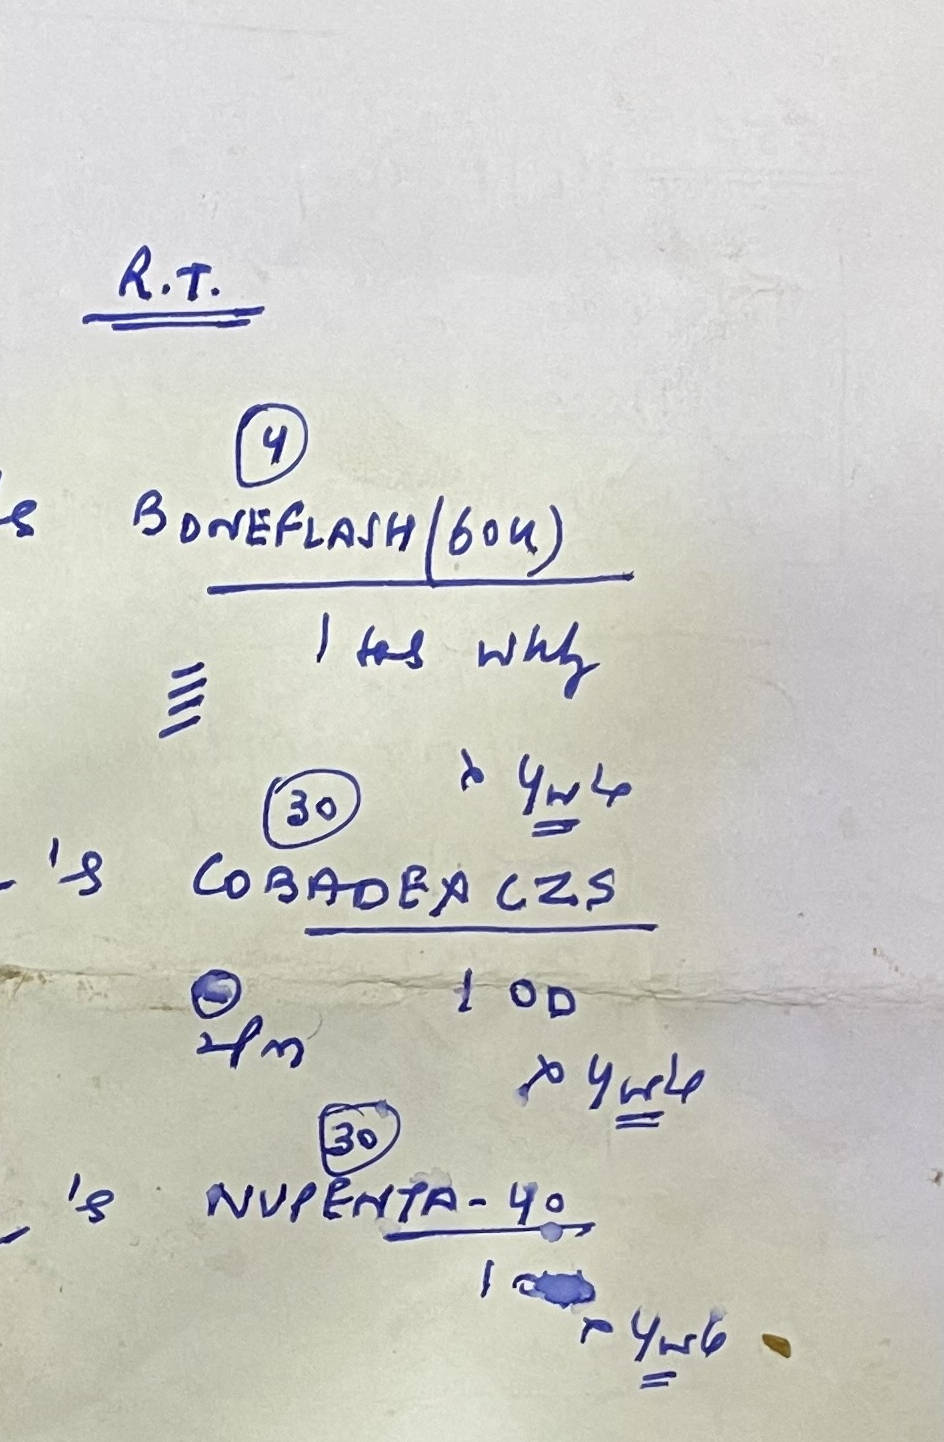 R.T.
4
's BONEFLASH (60K)
1 tab wkly
x 4 wk
30
's COBADEX CZS
1 OD
2pm
x 4 wk
30
's NUPENTA-40
1
x 4 wk